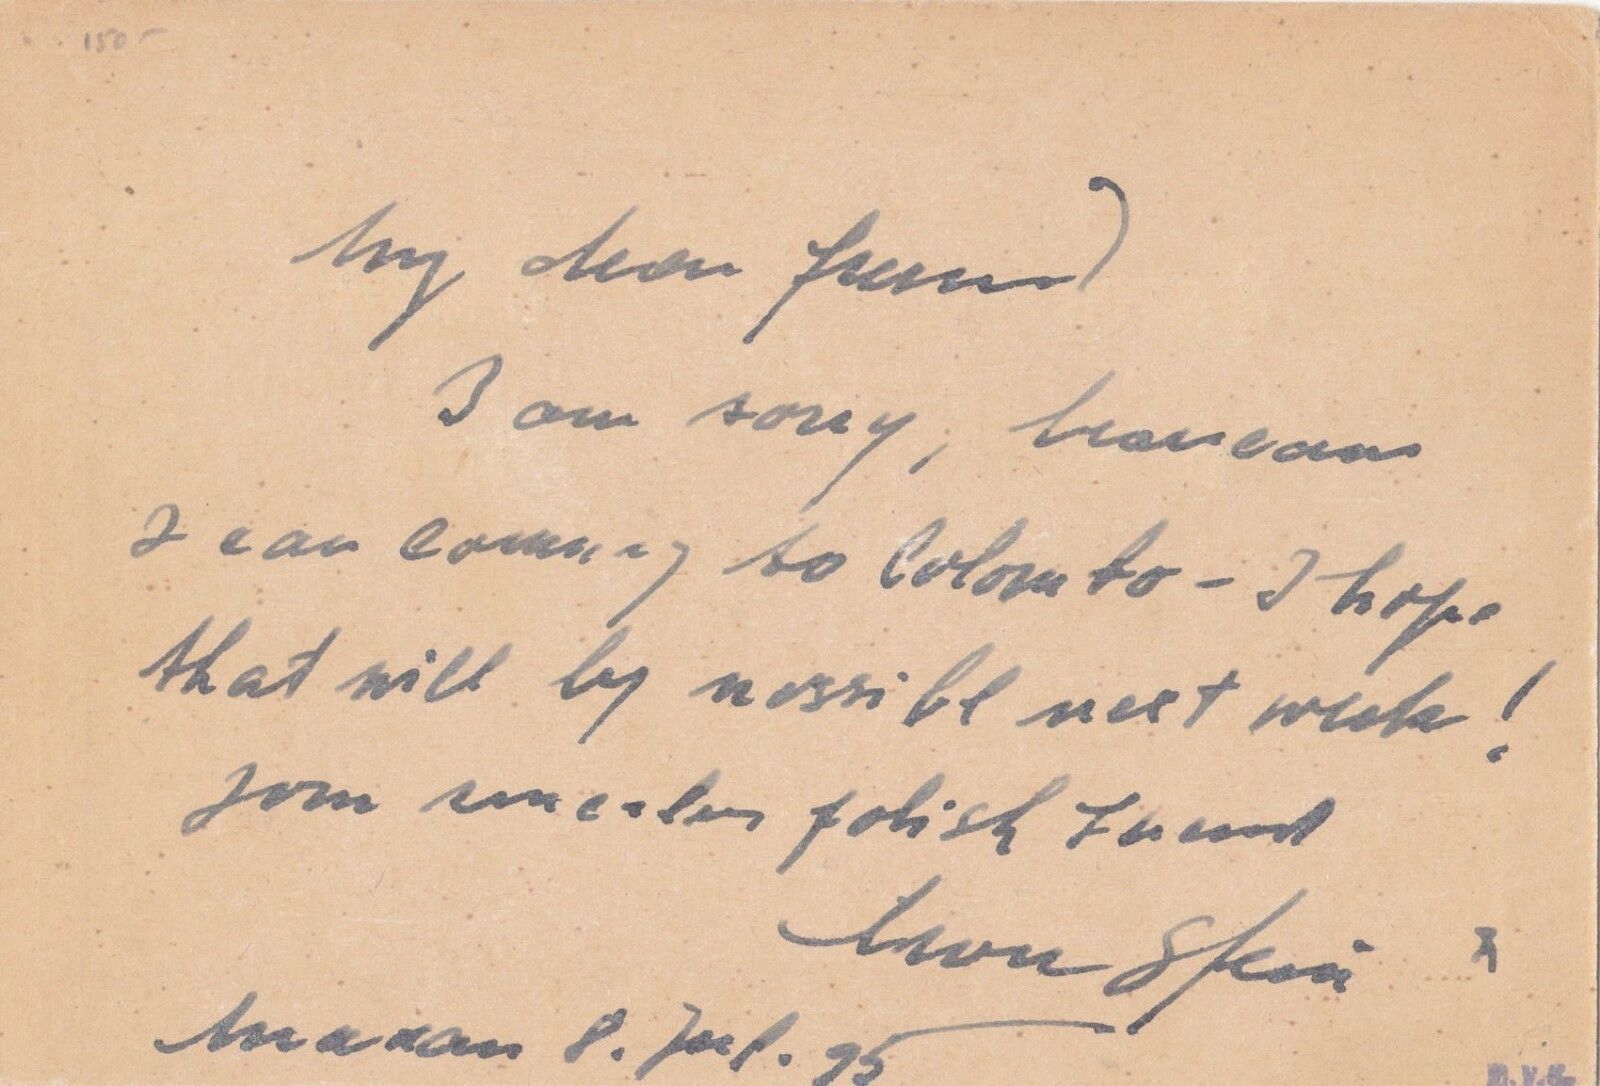 150-
My dear friend
I am sorry, because
I can coming to Colombo - I hope
that will by possible next week!
your polish friend
8. Jul. 95